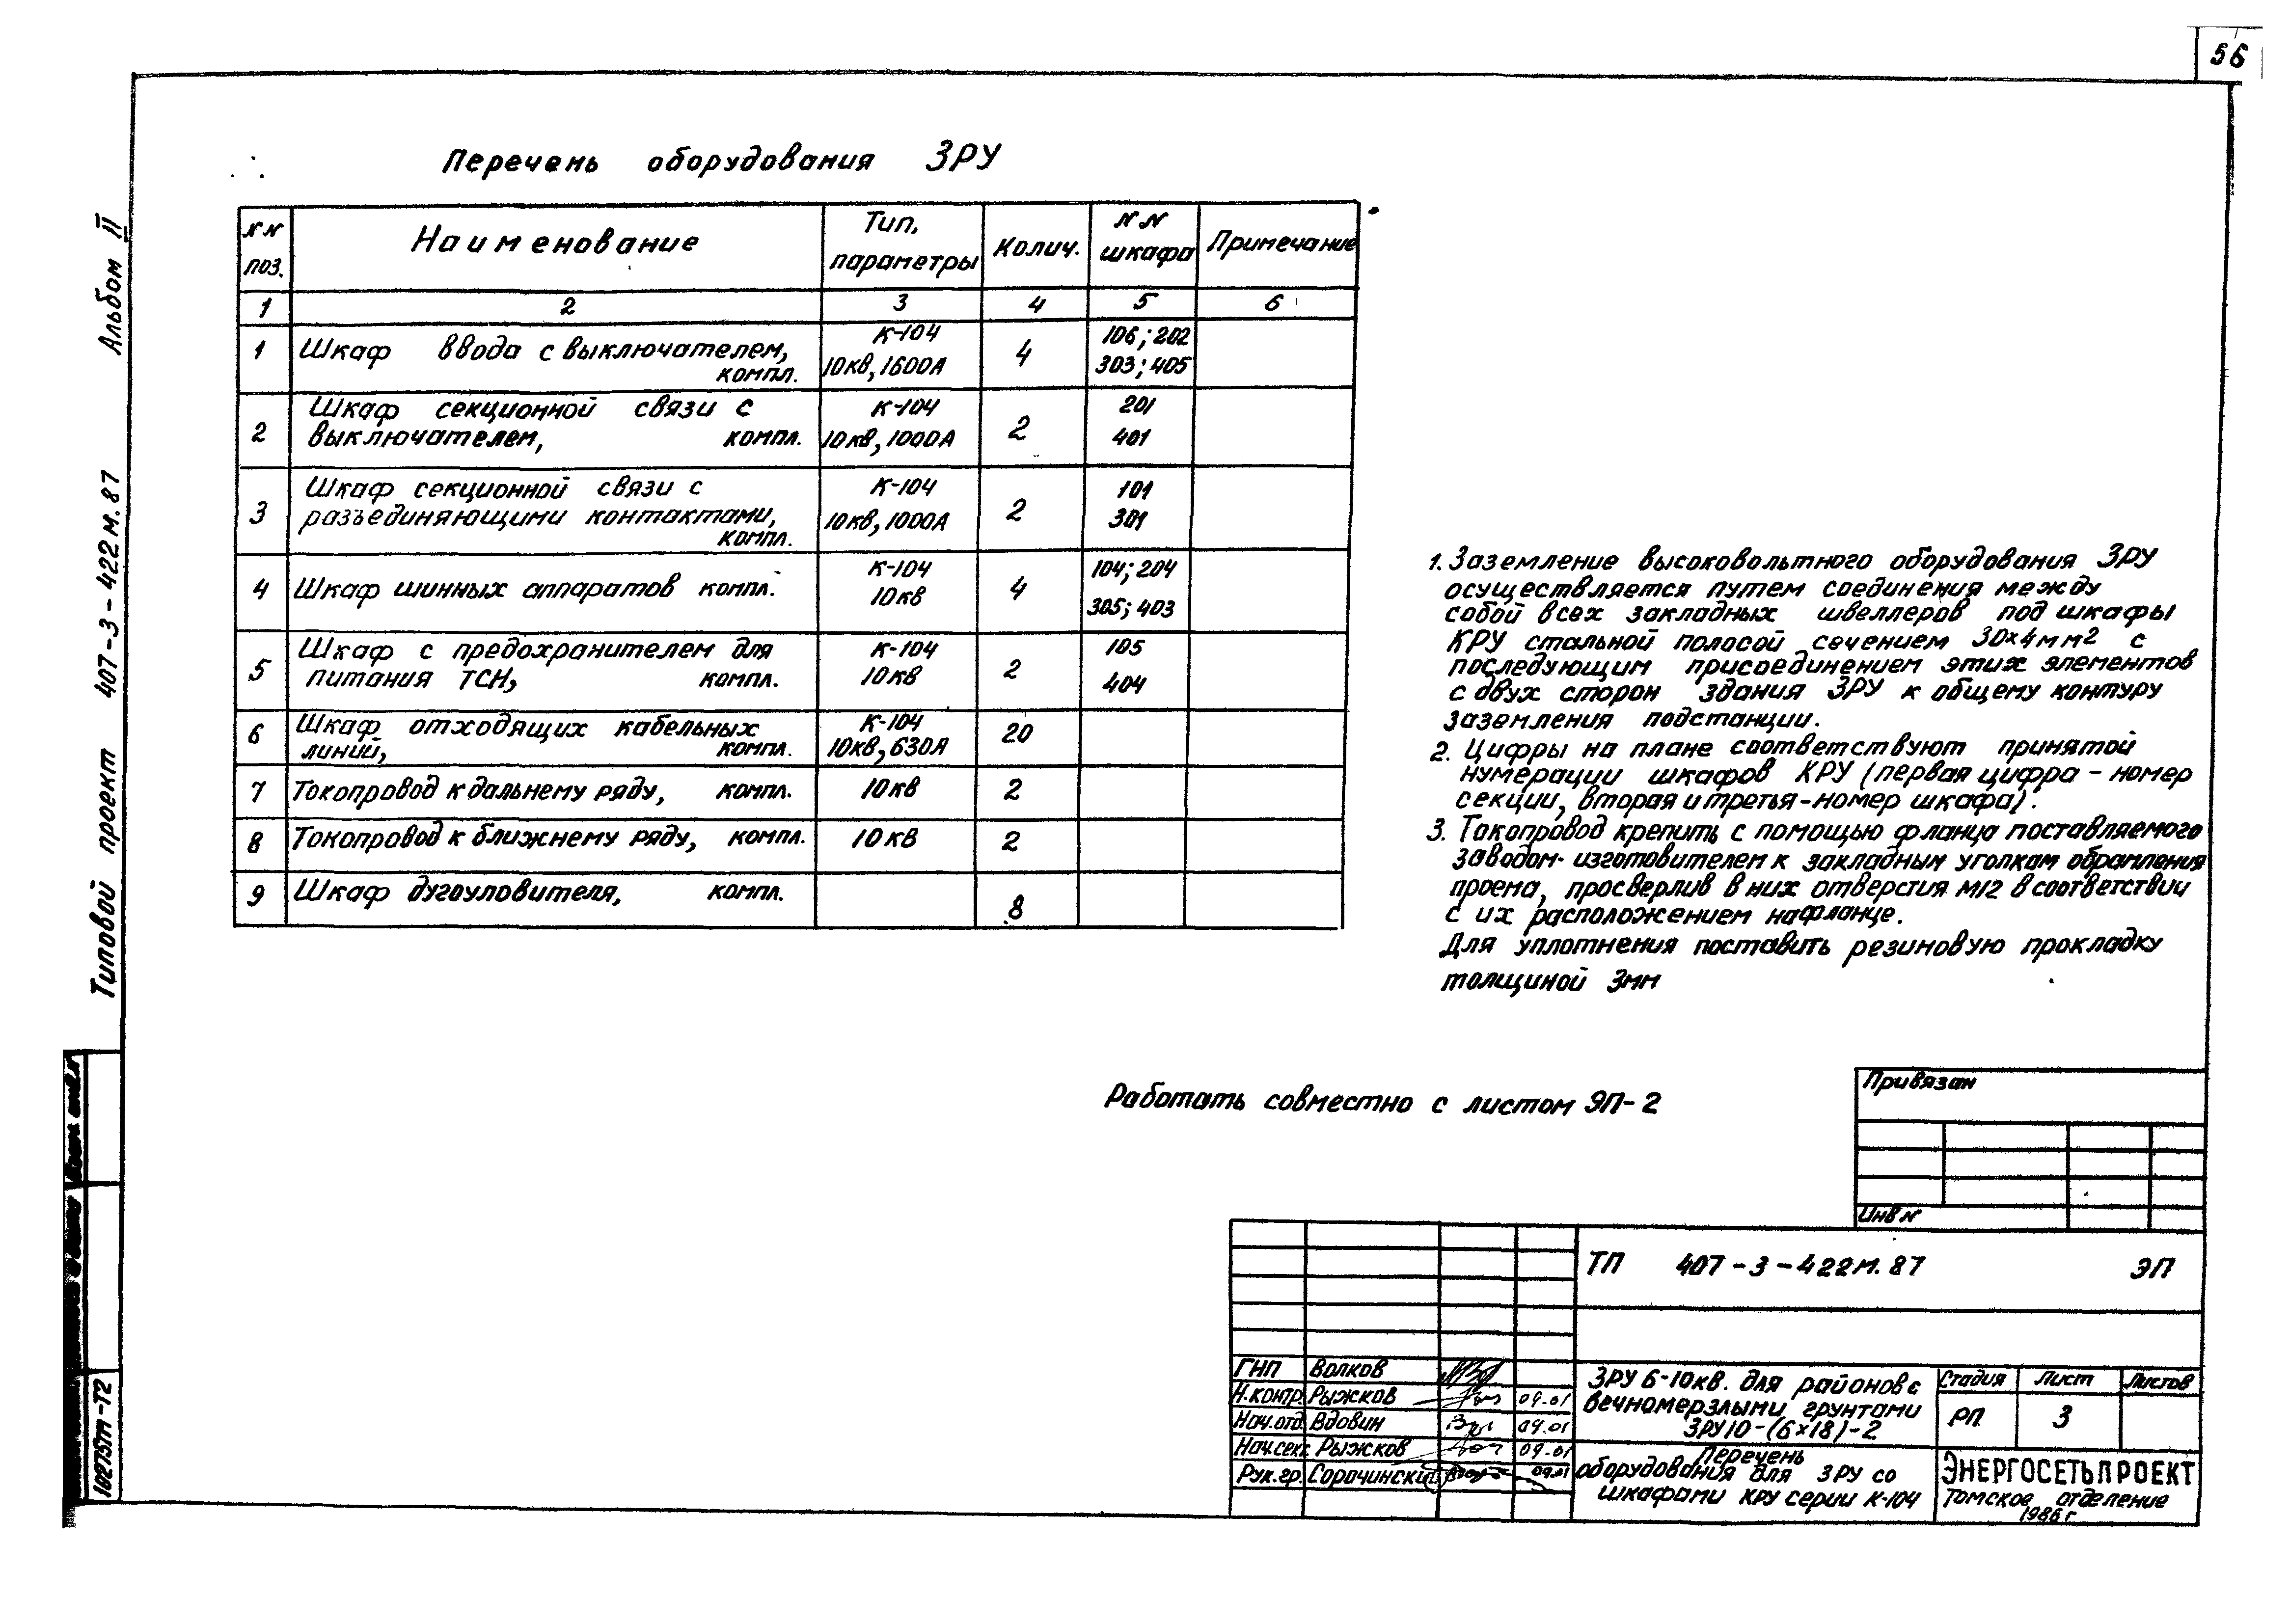 56
Альбом II
Типовой проект 407-3-422м.87
Перечень оборудования ЗРУ
NN поз. Наименование Тип, параметры Колич. NN шкафа Примечание
1 2 3 4 5 6
1 Шкаф ввода с выключателем, компл. К-104 10кв, 1600А 4 106; 202 303; 405
2 Шкаф секционной связи с выключателем, компл. К-104 10кв, 1000А 2 201 401
3 Шкаф секционной связи с разъединяющими контактами, компл. К-104 10кв, 1000А 2 101 301
4 Шкаф шинных аппаратов компл. К-104 10кв 4 104; 204 305; 403
5 Шкаф с предохранителем для питания ТСН, компл. К-104 10кв 2 105 404
6 Шкаф отходящих кабельных линий, компл. К-104 10кв, 630А 20
7 Токопровод к дальнему ряду, компл. 10кв 2
8 Токопровод к ближнему ряду, компл. 10кв 2
9 Шкаф дугоуловителя, компл. 8
1. Заземление высоковольтного оборудования ЗРУ
осуществляется путем соединения между
собой всех закладных швеллеров под шкафы
КРУ стальной полосой сечением 30×4мм2 с
последующим присоединением этих элементов
с двух сторон здания ЗРУ к общему контуру
заземления подстанции.
2. Цифры на плане соответствуют принятой
нумерации шкафов КРУ (первая цифра - номер
секции, вторая и третья - номер шкафа).
3. Токопровод крепить с помощью фланца поставляемого
заводом-изготовителем к закладным уголкам обрамления
проема, просверлив в них отверстия М12 в соответствии
с их расположением на фланце.
Для уплотнения поставить резиновую прокладку
толщиной 3мм
Работать совместно с листом ЭП-2
Привязан
Инв N
ТП 407-3-422м.87 ЭП
ГНП Волков
Н.контр. Рыжков 09.01
Нач.отд. Вдовин 09.01
Нач.секц. Рыжков 09.01
Рук.гр. Сорочинский 09.01
ЗРУ 6-10кв. для районов с
вечномерзлыми грунтами
ЗРУ10-(6×18)-2
Стадия Лист Листов
РП 3
Перечень
оборудования для ЗРУ со
шкафами КРУ серии К-104
ЭНЕРГОСЕТЬПРОЕКТ
Томское отделение
1986г
10275тм-Т2